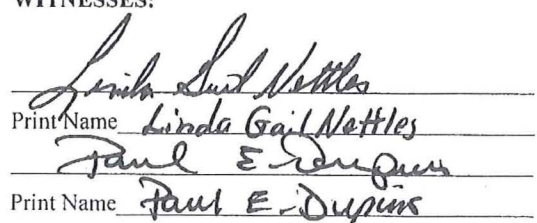 WITNESSES:
Linda Gail Nettles
Print Name Linda Gail Nettles
Paul E
Print Name Paul E.